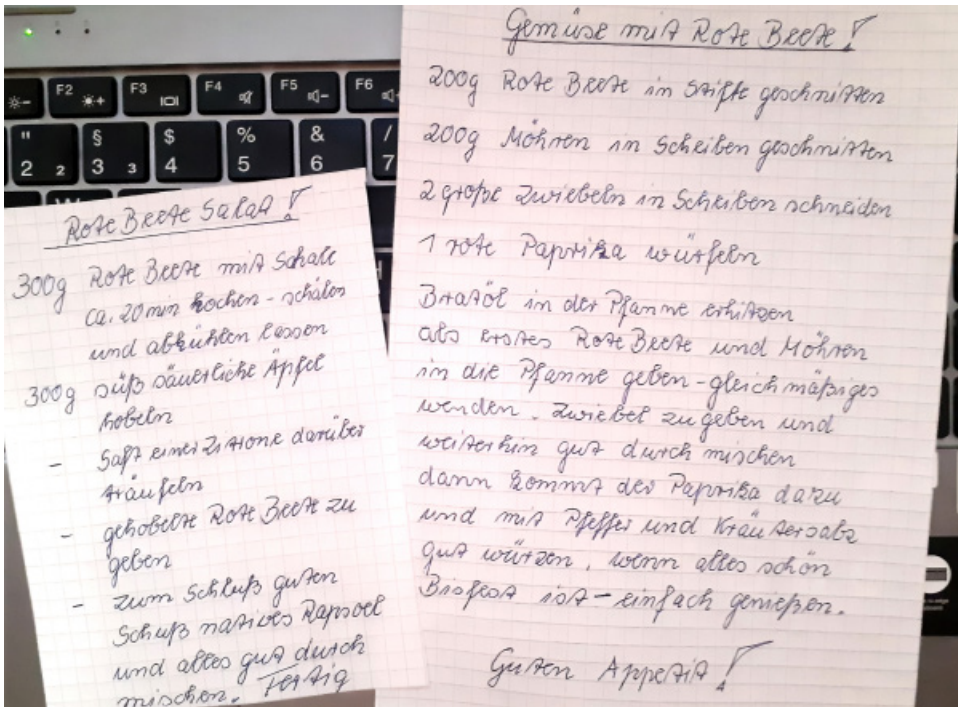 F2 F3 F4 F5 F6
" § $ % & /
2 2 3 3 4 5 6 7
Rote Beete Salat!
300g Rote Beete mit Schale
ca. 20 min kochen - schälen
und abkühlen lassen
300g süß säuerliche Äpfel
hobeln
- Saft einer Zitrone darüber
träufeln
- gehobelte Rote Beete zu
geben
- zum Schluß guten
Schuß natives Rapsoel
und alles gut durch
mischen. Fertig
Gemüse mit Rote Beete!
200g Rote Beete in Stifte geschnitten
200g Möhren in Scheiben geschnitten
2 große Zwiebeln in Scheiben schneiden
1 rote Paprika würfeln
Bratöl in der Pfanne erhitzen
als erstes Rote Beete und Möhren
in die Pfanne geben - gleichmäßiges
wenden. Zwiebel zugeben und
weiterhin gut durch mischen
dann kommt der Paprika dazu
und mit Pfeffer und Kräutersalz
gut würzen, wenn alles schön
Bisfest ist - einfach genießen.
Guten Appetit!